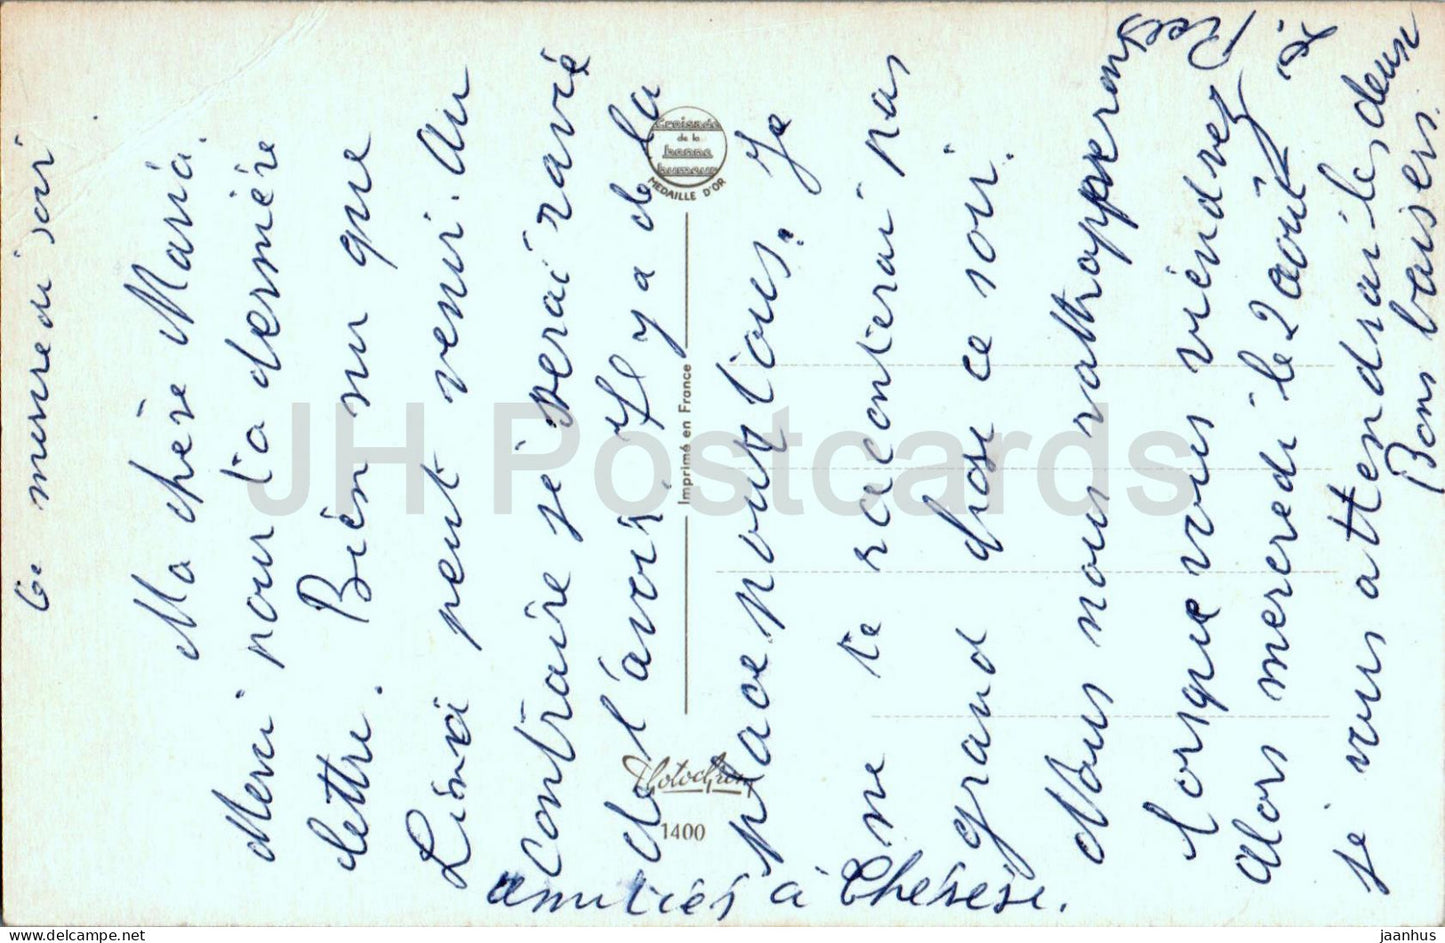 Ce mercredi soir
Ma chère Maria.
Merci pour ta dernière
lettre. Bien sur que
peut venir. Au
contraire je serai ravie
de l'avoir. Il y a de la
place pour tous. Je
ne te raconterai pas
grand chose ce soir.
Nous nous rattopperons
lorsque vous viendrez
Alors mercredi le 2 août
je vous attendrai les deux
Bons baisers.
amitiés à Thérèse.
Croisade
de la
bonne
humeur
MEDAILLE D'OR
Imprimé en France
Photochrom
1400
JH Postcards
www.delcampe.net
jaanhus